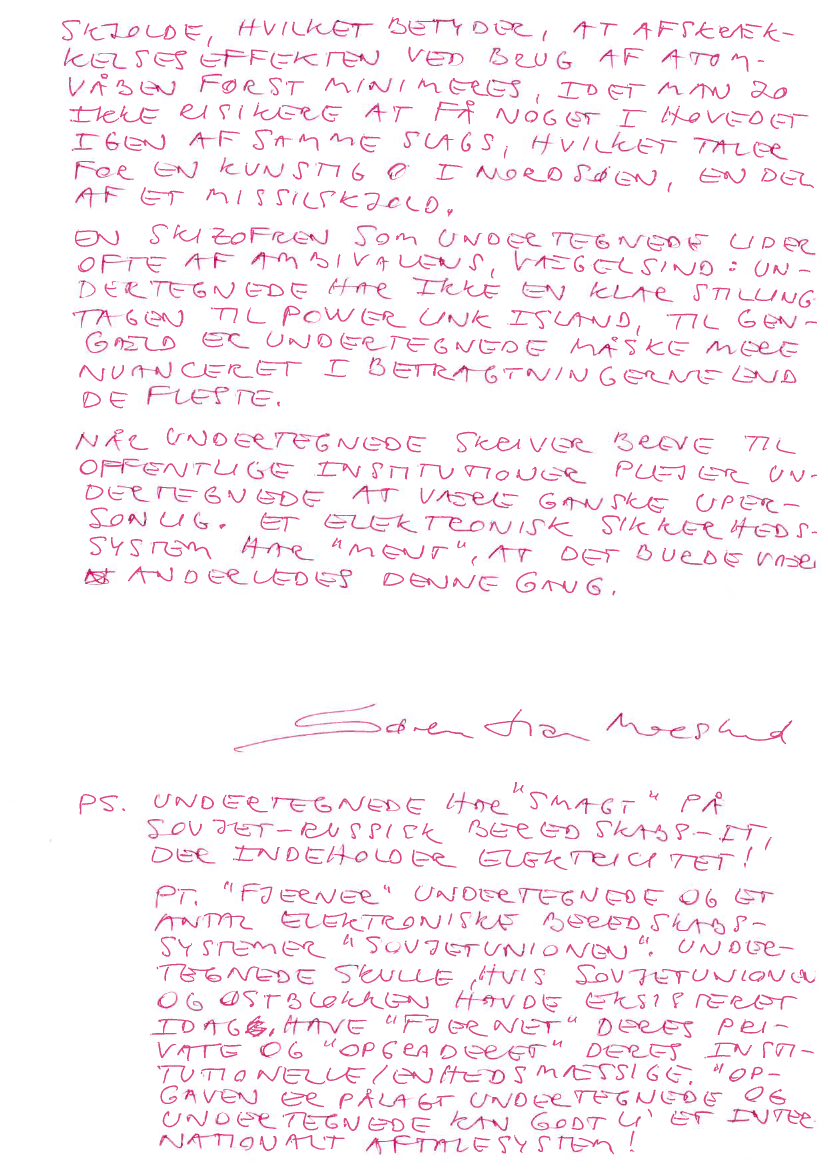 SKJOLDE, HVILKET BETYDER, AT AFSKRÆK-
KELSESEFFEKTEN VED BRUG AF ATOM-
VÅBEN FØRST MINIMERES, IDET MAN SO
IKKE RISIKERE AT FÅ NOGET I HOVEDET
IGEN AF SAMME SLAGS, HVILKET TALER
FOR EN KUNSTIG Ø I NORDSØEN, EN DEL
AF ET MISSILSKJOLD.
EN SKIZOFREN SOM UNDERTEGNEDE LIDER
OFTE AF AMBIVALENS, VÆGELSIND: UN-
DERTEGNEDE HAR IKKE EN KLAR STILLING
TAGEN TIL POWER LINK ISLAND, TIL GEN-
GÆLD ER UNDERTEGNEDE MÅSKE MERE
NUANCERET I BETRAGTNINGERNE END
DE FLESTE.
NÅR UNDERTEGNEDE SKRIVER BREVE TIL
OFFENTLIGE INSTITUTIONER PLEJER UN-
DERTEGNEDE AT VÆRE GANSKE UPER-
SONLIG. ET ELEKTRONISK SIKKERHEDS-
SYSTEM HAR "MENT", AT DET BURDE VÆRE
ANDERLEDES DENNE GANG.
Søren
PS. UNDERTEGNEDE HAR "SMAGT" PÅ
SOVJET-RUSSISK BEREDSKABS-IT,
DER INDEHOLDER ELEKTRICITET!
PT. "FJERNER" UNDERTEGNEDE OG ET
ANTAL ELEKTRONISKE BEREDSKABS-
SYSTEMER "SOVJETUNIONEN". UNDER-
TEGNEDE SKULLE, HVIS SOVJETUNIONEN
OG ØSTBLOKKEN HAVDE EKSISTERET
IDAG, HAVE "FJERNET" DERES PRI-
VATE OG "OPGRADERET" DERES INSTI-
TUTIONELLE/ENHEDSMÆSSIGE. "OP-
GAVEN ER PÅLAGT UNDERTEGNEDE OG
UNDERTEGNEDE KAN GODT LI' ET INTER
NATIONALT AFTALESYSTEM!